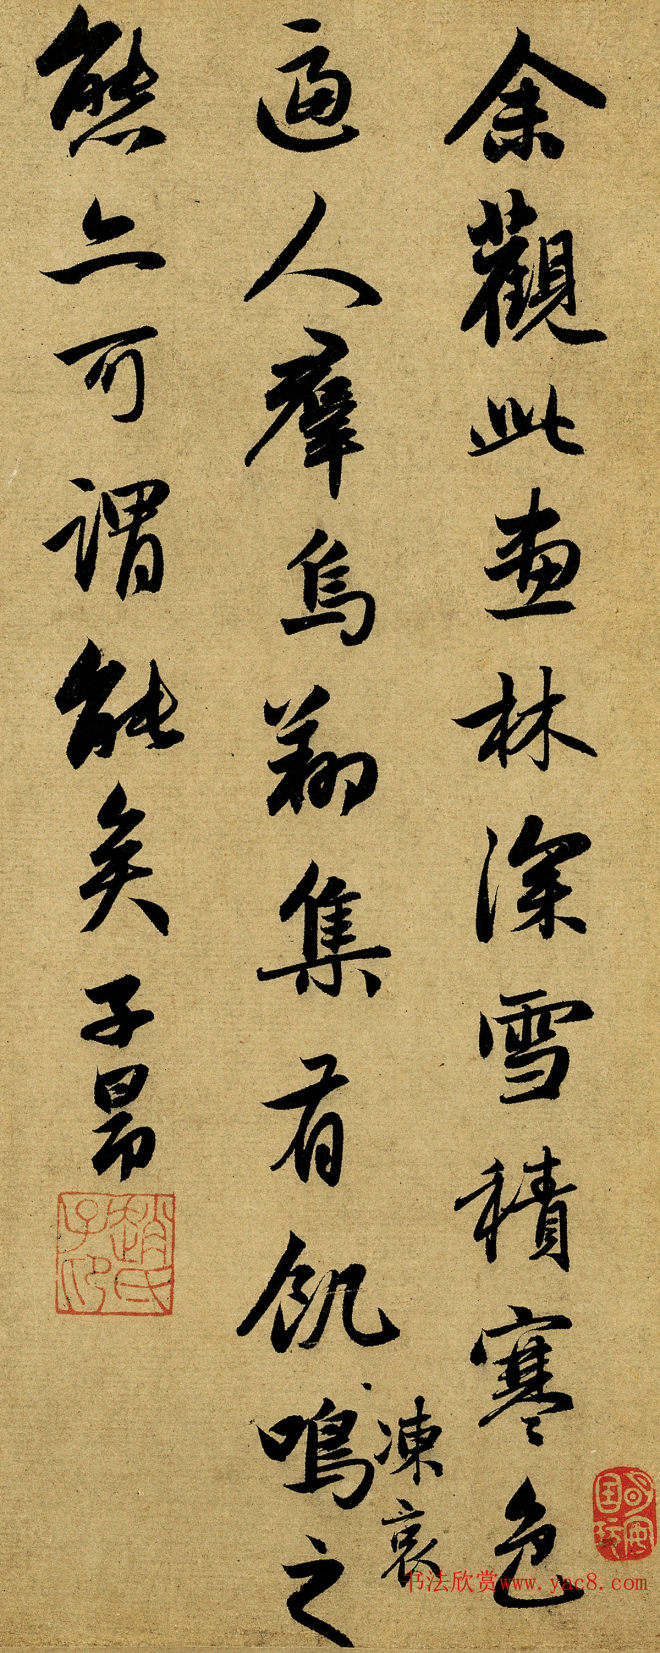 余觀此畫林深雪積寒色
逼人羣烏翔集有飢鳴之
凍哀
態亦可謂能矣子昂
趙氏子印
书法欣赏www.yac8.com